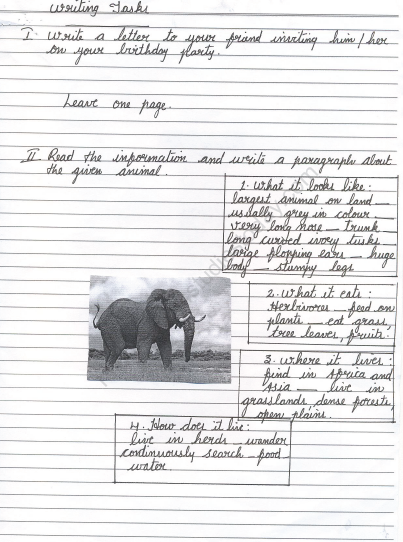 Writing Tasks
I. Write a letter to your friend inviting him/her
on your birthday party.
Leave one page.
II. Read the information and write a paragraph about
the given animal.
1. What it looks like:
largest animal on land __
usually grey in colour __
very long nose __ trunk __
long curved ivory tusks __
large flopping ears __ huge
body __ stumpy legs
2. What it eats:
Herbivores _ feed on
plants _ eat grass,
tree leaves, fruits.
3. Where it lives:
find in Africa and
Asia __ live in
grasslands, dense forests,
open plains.
4. How does it live:
live in herds _ wander
continuously search _ food
water.